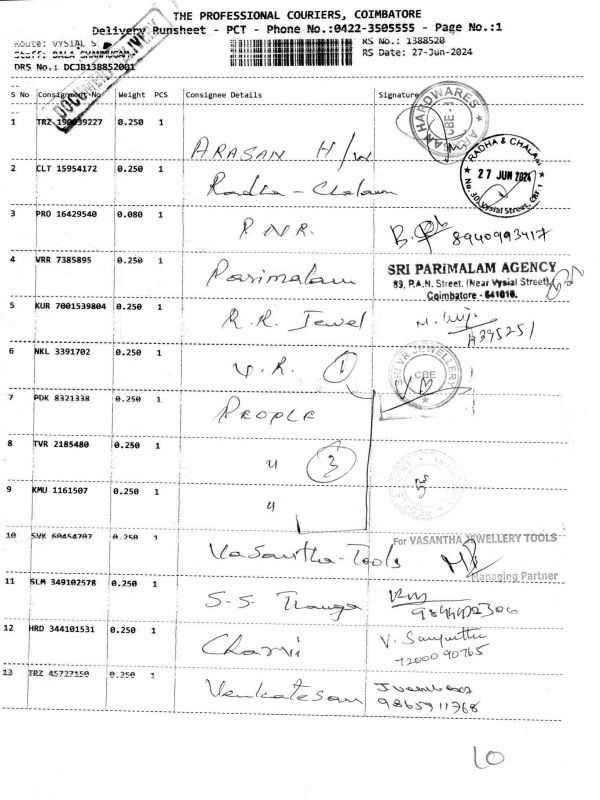 THE PROFESSIONAL COURIERS, COIMBATORE
Delivery Runsheet - PCT - Phone No.:0422-3505555 - Page No.:1
Route: VYSIAL S
RS No.: 1388520
Staff: BALA SHANMUGAM
RS Date: 27-Jun-2024
DRS No.: DCJB138852001
S No Consignment No Weight PCS Consignee Details Signature
1 TRZ 0.250 1 ARASAN H/W
HARDWARES CBE - 1
2 CLT 15954172 0.250 1 Radha - Chalam
RADHA & CHALAM
27 JUN 2024
No. 30, Vysial Street, CBE-1
3 PRO 16429540 0.080 1 R N R. B. 8940993417
4 VRR 7385895 0.250 1 Parimalam
SRI PARIMALAM AGENCY
89, P.A.N. Street. (Near Vysial Street)
Coimbatore - 641010.
5 KUR 7001539804 0.250 1 R.R. Jewel
A395251
6 NKL 3391702 0.250 1 V. R. 1
SRI VR JEWELLERY CBE
7 PDK 8321338 0.250 1 PEOPLE
8 TVR 2185480 0.250 1 " 3
9 KMU 1161507 0.250 1 "
10 SVK 60454707 0.250 1 Vasantha - Tools
For VASANTHA JEWELLERY TOOLS
Managing Partner
11 SLM 349102578 0.250 1 S. S.
12 HRD 344101531 0.250 1
V.
7200090765
13 TRZ 45727150 0.250 1 Venkatesan
9865911768
10